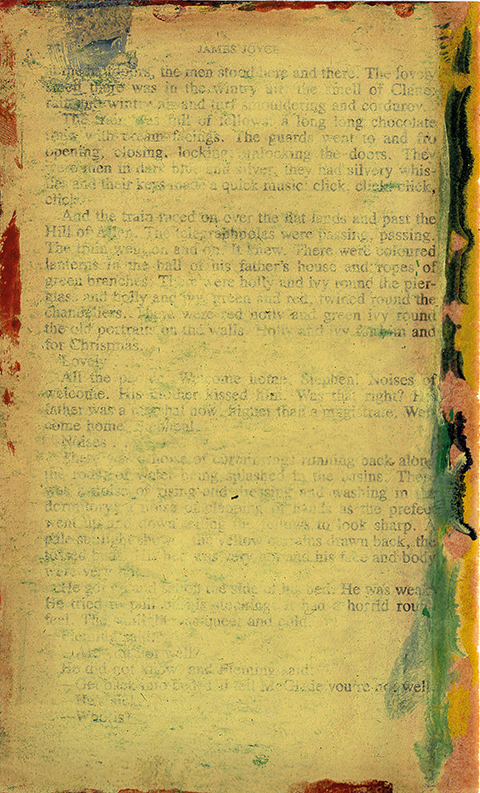 JAMES JOYCE
the men stood here and there. The lovely
smell there was in the wintry air: the smell of Clane:
rain and wintry air and turf smouldering and corduroy.
The train was full of fellows: a long long chocolate
train with cream facings. The guards went to and fro
opening, closing, locking, unlocking the doors. They
were men in dark blue and silver; they had silvery whis-
tles and their keys made a quick music: click, click: click,
click.
And the train raced on over the flat lands and past the
Hill of Allen. The telegraphpoles were passing, passing.
The train went on and on. It knew. There were coloured
lanterns in the hall of his father's house and ropes of
green branches. There were holly and ivy round the pier-
glass and holly and ivy, green and red, twined round the
chandeliers. There were red holly and green ivy round
the old portraits on the walls. Holly and ivy for him and
for Christmas.
Lovely
All the Welcome home, Stephen! Noises of
welcome. His mother kissed him. Was that right? His
father was a marshal now: higher than a magistrate. Wel-
come home, Stephen!
Noises
There was a noise of running back along
the rods, of water being splashed in the basins. There
was a noise of rising and dressing and washing in the
dormitory: a noise of clapping of hands as the prefect
went up and down telling the fellows to look sharp. A
pale sunlight the yellow curtains drawn back, the
tossed beds. His bed was very hot and his face and body
were very
He got up and sat on the side of his bed. He was weak.
He tried to pull on his stocking. It had a horrid rough
feel. The sunlight was queer and cold.
Fleming said:
not well?
He did not know; and Fleming said:
—Get back into bed. I'll tell McGlade you're not well.
—He's sick.
—Who is?